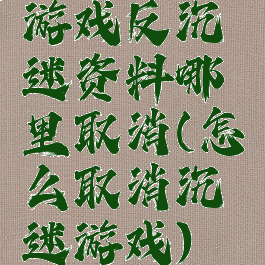 游戏反沉
迷资料哪
里取消(怎
么取消沉
迷游戏)